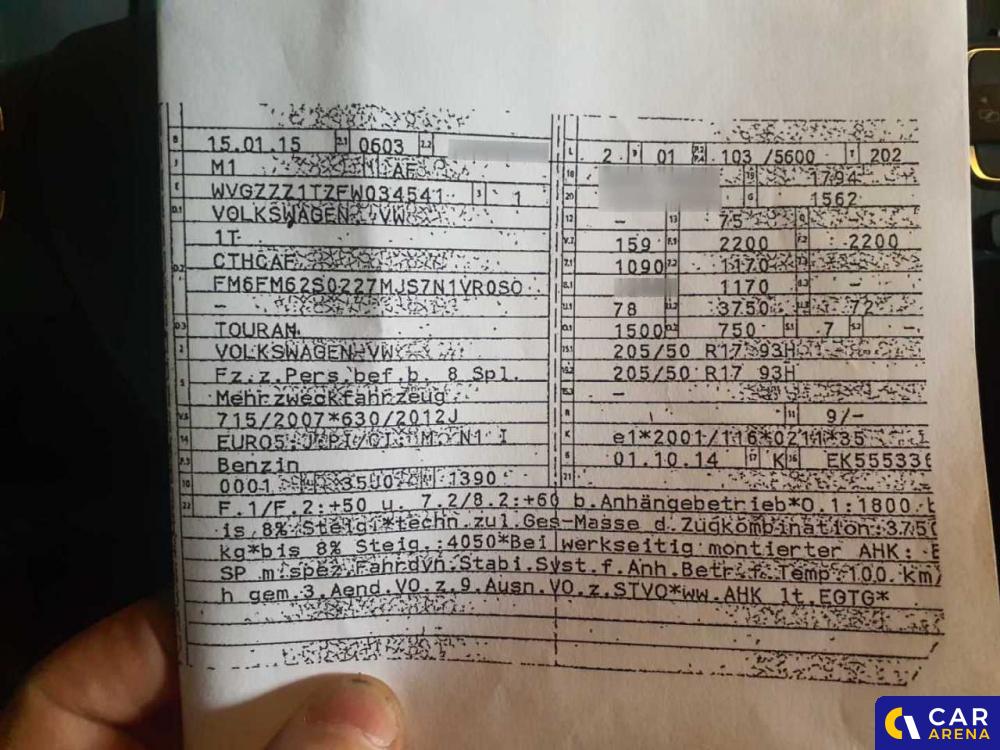 B 15.01.15 2.1 0603 2.2
J M1 AF
E WVGZZZ1TZFW034541 3 1
D.1 VOLKSWAGEN, VW
1T
D.2 CTHCAF
FM6FM62S0227MJS7N1VR0S0
–
D.3 TOURAN
2 VOLKSWAGEN, VW
5 Fz.z.Pers.bef.b. 8 Spl.
Mehrzweckfahrzeug
V.9 715/2007*630/2012J
14 EURO5
P.3 Benzin
10 0001 1390
L 2 9 01 P.2 P.4 103 /5600 T 202
18 19 1794
20 G 1562
12 – 13 75 Q –
V.7 159 F.1 2200 F.2 2200
7.1 1090 7.2 1170 7.3 –
8.1 1170 8.3 –
U.1 78 U.2 3750 U.3 72
O.1 1500 O.2 750 S.1 7 S.2 –
15.1 205/50 R17 93H
15.2 205/50 R17 93H
15.3 –
R 11 9/–
K e1*2001/116*0211*35
6 01.10.14 17 K 16
21
22 F.1/F.2:+50 u. 7.2/8.2:+60 b.Anhängebetrieb*O.1:1800 b
is 8% Steig.*techn.zul.Ges-Masse d.Zugkombination:3750
kg*bis 8% Steig.:4050*Bei werkseitig montierter AHK: E
SP m.spez.Fahrdyn.Stabi.Syst.f.Anh.Betr.f.Temp.100 km/
h gem.3.Aend.VO.z.9.Ausn.VO.z.STVO*ww.AHK lt.EGTG*
CAR
ARENA